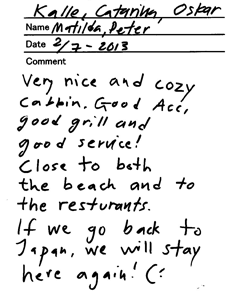 Kalle, Catarina, Oskar
Name Matilda, Peter
Date 2/7-2013
Comment
Very nice and cozy
cabbin. Good Acc,
good grill and
good service!
Close to both
the beach and to
the resturants.
If we go back to
Japan, we will stay
here again! (: